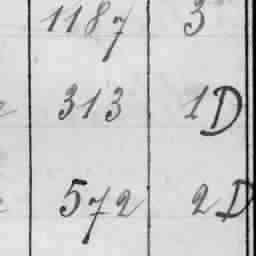 1187 3
313 1D
572 2D